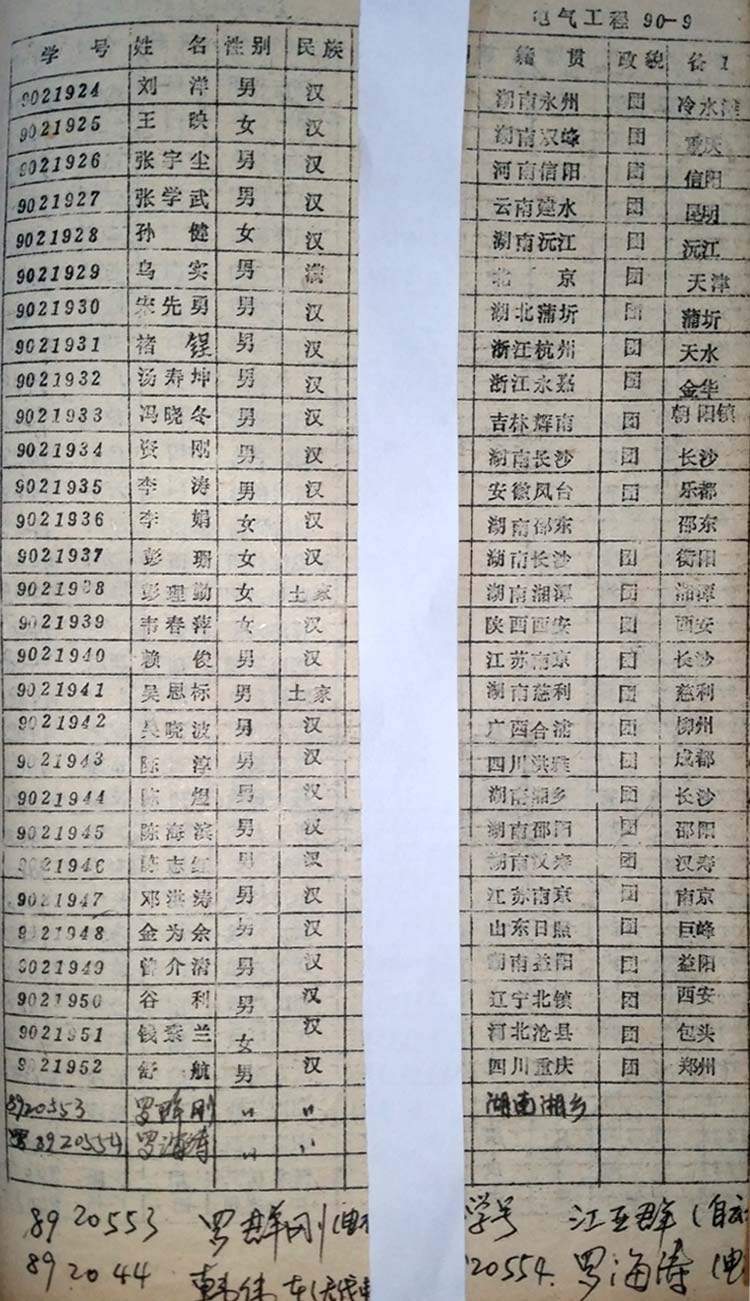 电气工程 90-9
学号 姓名 性别 民族 籍贯 政貌
9021924 刘洋 男 汉 湖南永州 团 冷水滩
9021925 王映 女 汉 湖南双峰 团 重庆
9021926 张宇尘 男 汉 河南信阳 团 信阳
9021927 张学武 男 汉 云南建水 团 昆明
9021928 孙健 女 汉 湖南沅江 团 沅江
9021929 乌实 男 满 北京 团 天津
9021930 宋先勇 男 汉 湖北蒲圻 团 蒲圻
9021931 褚锃 男 汉 浙江杭州 团 天水
9021932 汤寿坤 男 汉 浙江永嘉 团 金华
9021933 冯晓冬 男 汉 吉林辉南 团 朝阳镇
9021934 资刚 男 汉 湖南长沙 团 长沙
9021935 李涛 男 汉 安徽凤台 团 乐都
9021936 李娟 女 汉 湖南邵东 邵东
9021937 彭珊 女 汉 湖南长沙 团 衡阳
9021938 彭理勤 女 土家 湖南湘潭 团 湘潭
9021939 韦春萍 女 汉 陕西西安 团 西安
9021940 赖俊 男 汉 江苏南京 团 长沙
9021941 吴恩标 男 土家 湖南慈利 团 慈利
9021942 吴晓波 男 汉 广西合浦 团 柳州
9021943 陈淳 男 汉 四川洪雅 团 成都
9021944 陈煜 男 汉 湖南湘乡 团 长沙
9021945 陈海滨 男 汉 湖南邵阳 团 邵阳
9021946 陈志红 男 汉 湖南汉寿 团 汉寿
9021947 邓洪涛 男 汉 江苏南京 团 南京
9021948 金为余 男 汉 山东日照 团 巨峰
9021949 曾介清 男 汉 湖南益阳 团 益阳
9021950 谷利 男 汉 辽宁北镇 团 西安
9021951 钱素兰 女 汉 河北沧县 团 包头
9021952 舒航 男 汉 四川重庆 团 郑州
8920553 罗群刚 〃 〃 湖南湘乡
8920554 罗海涛 〃 〃
8920553 罗群刚(电 学号 江亚群(自动
892044 韩伟 20554 罗海涛(电